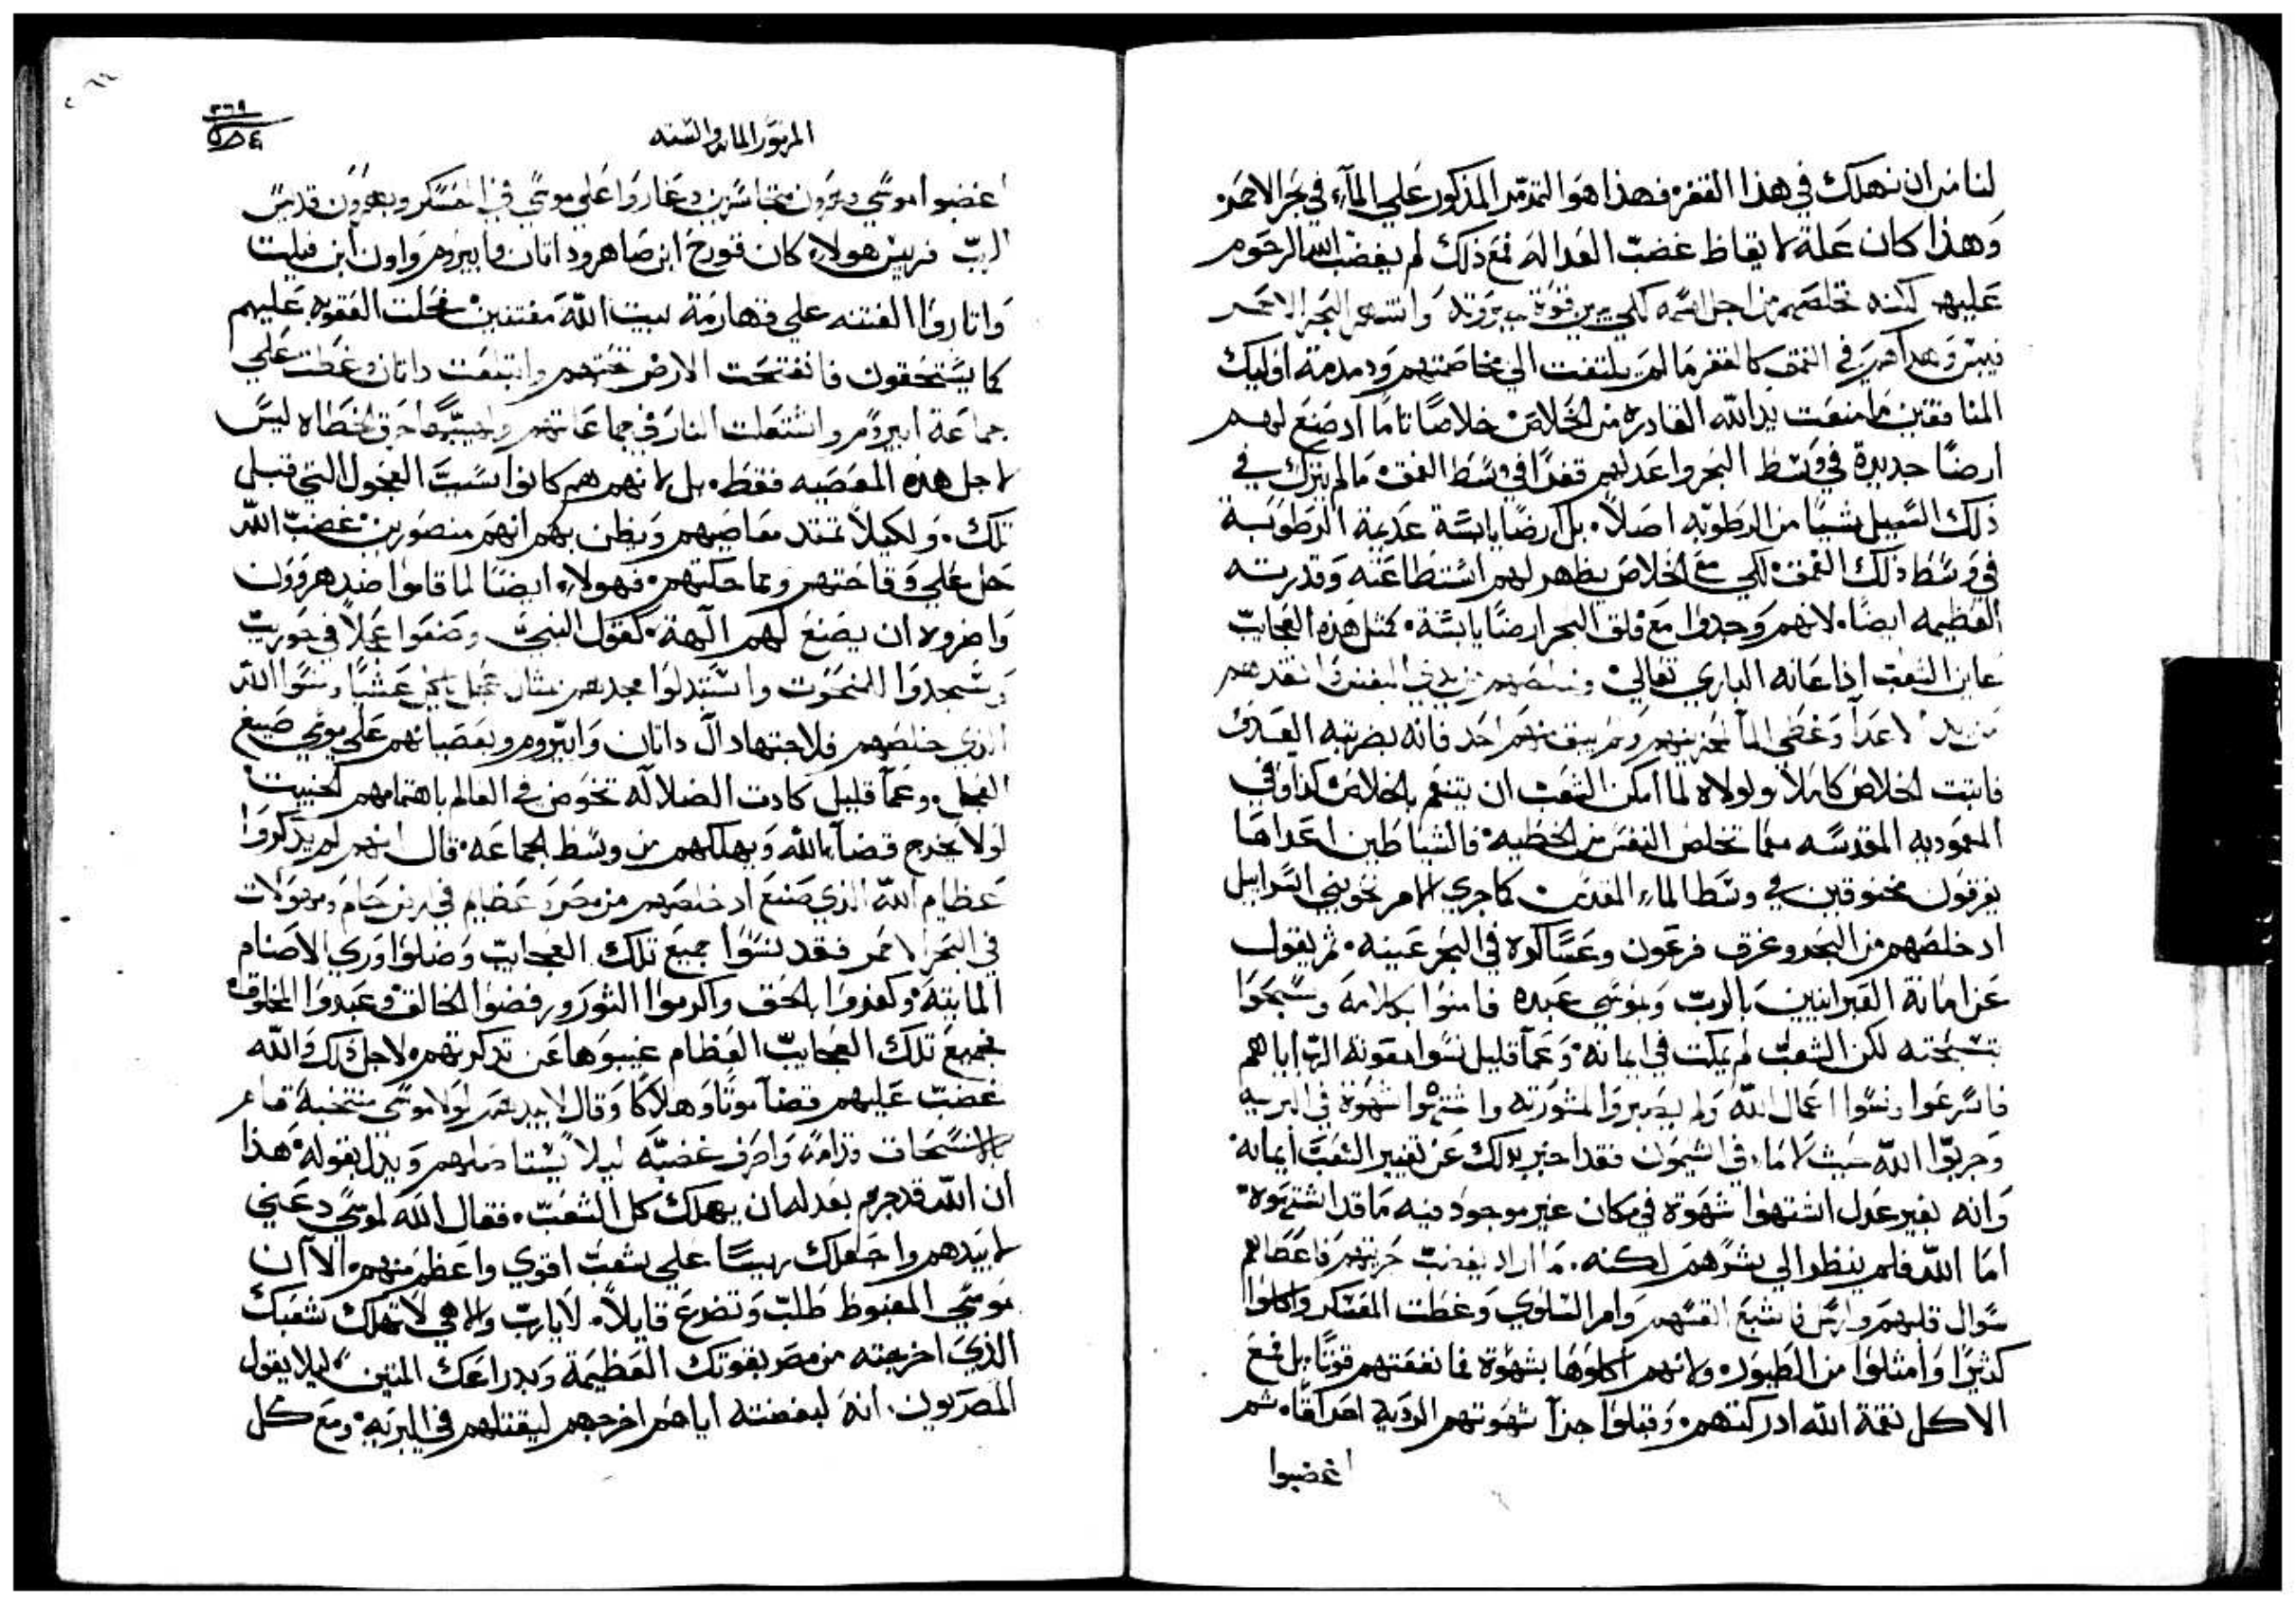 لنا من ان نهلك في هذا القفر فهذا هو التذمر المذكور علي المآء في بحر الاحمر
وهذا كان علة لايقاظ غضب العداله فمع ذلك لم يغضب الله الرحوم
عليهم لكنه تخلصهم من اجل اسمه لكي يبرين قوة جبروته وانتهر البحر الاحمر
فيبس وهداهم في العمق كالقفر ما لم يلتفت الي مخاصمتهم ودمدمة اوليك
المنافقين ما منعت يد الله القادره من الخلاص خلاصًا تامًا اد صنع لهم
ارضًا جديدة في وسط البحر واعد لهم قفرًا في وسط العمق ما لم يترك في
ذلك السبيل شيا من الرطوبه اصلاً بل ارضًا يابسة عديمة الرطوبة
في وسط ذلك العمق لكي مع الخلاص يظهر لهم استطاعته وقدرته
العظيمه ايضًا لانهم وجدوا مع فلق البحر ارضًا يابسة كمثل هذه العجايب
عاين الشعب اذ اعانه الباري تعالي وخلصهم من يدي المبغضين وانقدهم
من يد الاعدآ وغطي المآ محزنيهم ولم يبق منهم احد فانه بضربته العدو
فاتبت الخلاص كاملاً ولولاه لما امكن الشعب ان يتنعم بالخلاص كذا وفي
المعموديه المقدسه مما تخلص النفس من الخطيه فالشياطين اعداها
يغرقون مخنوقين في وسط الماء المقدس كما جري الامر نحو بني اسراييل
اد خلصهم من البحر وغرق فرعون وعساكره في البحر عينه ثم يقول
عن امانة العبرانيين بالرب وبموسي عبده فامنوا بكلامه وسبحوا
تسبحته لكن الشعب لم يمكت في ايمانه وعمآ قليل نسوا معونة الرب اياهم
فاسرعوا ونسوا اعمال الله ولم يصبروا لمشورته واشتهوا شهوة في البريه
وجربوا الله حيث لا ماء في اشيمون فقد اخبر بدلك عن تغيير الشعب ايمانه
وانه بغير عدل اشتهوا شهوة في مكان غير موجود فيه ما قد اشتهوه
اما الله فلم ينظر الي شرهم لكنه ما اراد بغضب حزنهم فاعطاهم
سوال قلبهم وارسل فاشبع انفسهم وامر السلوي وغطت المعسكر واكلوا
كثيرًا وامتلوا من الطيور ولانهم اكلوها بشهوة فما نفعتهم قوتًا بل فمع
الاكل نقمة الله ادركتهم وقبلوا جزآ شهوتهم الرديه احراقًا ثم
اغضبوا
٣٦٩
المزمور المايه والسته
اغضبوا موسي وهرون متجاسرين وغاروا علي موسي في المعسكر وبهرون قديس
الرب فريس هولاء كان قورح ابن صاهر وداتان وابيروم واون ابن فيلت
واتاروا الفتنه علي قهارمة بيت الله مفتنين فحلت العقوبه عليهم
كما يستحقون فانفتحت الارض تحتهم وابتلعت داتان وغطت علي
جماعة ابيروم واشتعلت النار في جماعاتهم واللهيب احرق الخطاه ليس
لاجل هذه المعصيه فقط بل لانهم هم كانوا سبب العجول التي قبلي
تلك ولكيلا تمتد معاصيهم ويظن بهم انهم منصورين غضب الله
حل علي وقاحتهم ومماحكتهم فهولاء ايضًا لما قاموا ضد هرون
واضروه ان يصنع لهم آلهة كقول النبي وصنعوا عجلاً في حوريب
وسجدوا للمنحوت واستبدلوا مجدهم بمثال عجل ياكل عشبًا ونسوا الله
الذي خلصهم فلاجتهاد آل داتان وابيروم وبعصيانهم علي موسي صيغ
العجل وعمآ قليل كادت الضلاله تخوض في العالم باهتمامهم الخبيت
لولا يخرج قضآ الله ويهلكهم من وسط الجماعه قال انهم لم يدكروا
عظايم الله الذي صنع اد خلصهم من مصر وعظايم في ارض حام ومرهولات
في البحر الاحمر فقد نسوا جميع تلك العجايب وضلوا وري الاصنام
المايته وكفروا بالحق واكرموا الثور ورفضوا الخالق وعبدوا المخلوق
فجميع تلك العجايب العظام غيبوها عن تدكرتهم لاجل ذلك والله
غضب عليهم قضآ موتًا وهلاكًا وقال لابيدهم لولا موسي منتخبه قام
بالانسحاق قدامه واصرف غضبه ليلا يستاصلهم ويدل بقوله هذا
ان الله قد جرم بعدله ان يهلك كل الشعب فقال الله لموسي دعني
لابيدهم واجعلك ريسًا علي شعب اقوي واعظم منهم الا ان
موسي المغبوط طلب وتضرع قايلاً لا يارب والاهي لا تهلك شعبك
الذي اخرجته من مصر بقوتك العظيمة وبدراعك المتين ليلا يقول
المصريون انه لبغضته اياهم اخرجهم ليقتلهم في البريه ومع كل